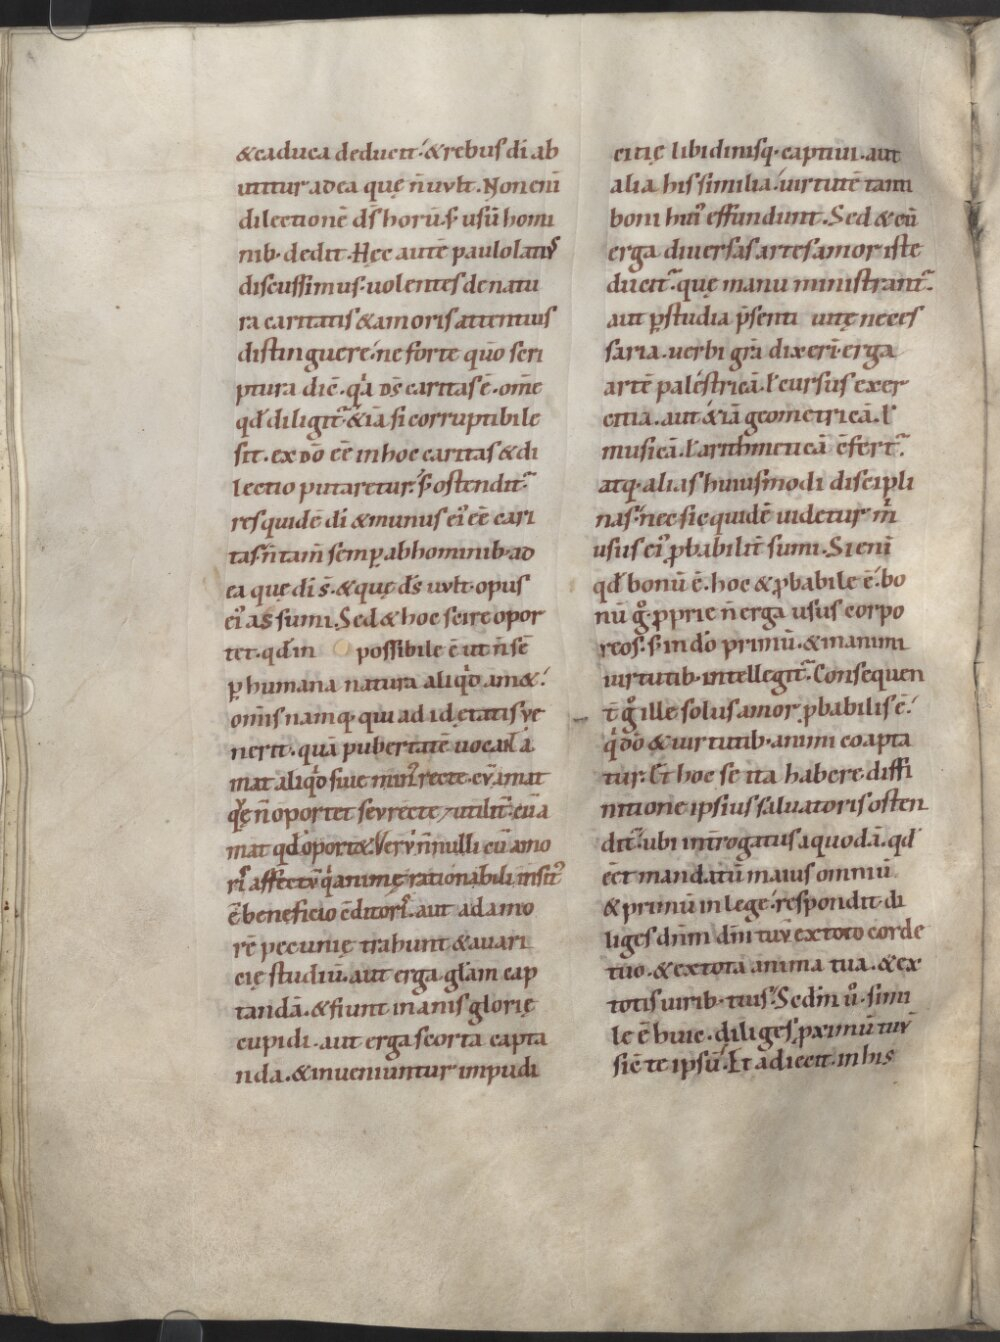 &caduca deducit·́ &rebus di ab
utitur ad ea quę n̄ uult. Non eni̅
dilectione̅ ds̅ horu̅·s; usu̅ homi
nib· dedit. Hęc aute̅ paulo latiꝰ
discussimus· uolentes de natu
ra caritatis & amoris attentius
distinguere·́ ne forte quo̅ scri
ptura dic̅· q̍a ds̅ caritas e̅· om̅e
qd̵ diligit᷑·́ &ia̅ si corruptibile
sit· ex do̅ ee̅ in hoc caritas & di
lectio putaretur·́ s; ostendit᷑
res quide̅ di̅ & munus eiꝰ ee̅ cari
tas·n̄ tam̅ semp̱ ab hominib· ad
ea quę di̅ s̅· & quę ds̅ uult· opus
eiꝰ assumi. Sed & hoc scire opor
tet· qd̵ in possibile e̅ ut n̄ se̅
p̱ humana natura aliq̍d am&·́
om̅is namq· qui ad id ętatis ue
nerit· qua̅ pubertate̅ uocant a
mat aliq̍d siue minꝰ recte· cu̅ amat
q̍d n̄ oportet seu recte / utilit̅· cu̅ a
mat qd̵ oport&. Veru̅ n̄nulli cu̅ amo
ris affectu̅ q̍ animę rationabili insitꝰ
e̅ beneficio c̅ditoris· aut ad amo
re̅ pecunię trahunt & auari
cię studiu̅· aut erga glam̅ cap
tanda̅· & fiunt inanis glorię
cupidi· aut erga scorta capta
nda· & inueniuntur impudi
citię libidinisq· captiui· aut
alia his similia·́ uirtute̅ tam
boni huiꝰ effundunt. Sed & cu̅
erga diuersas artes amor iste
ducit᷑· quę manu ministrant᷑·
aut p̱ studia p̅senti uitę neces
saria· uerbi gra̅ dixeri̅· erga
arte̅ palestrica̅· ł cursus exer
citia· aut &ia̅ geometrica̅· ł
musica̅· ł arithmetica̅ c̅fert᷑·
atq· alias huiusmodi discipli
nas· nec sic quide̅ uidetur m̍
usus eiꝰ ꝓbabilit̅ sumi. Si eni̅
qd̵ bonu̅ e̅· hoc & ꝓbabile e̅·́ bo
nu̅ g̊· ꝓprie n̄ erga usus corpo
reos· s; in do̅ primu̅· & in animi
uirtutib· intellegit᷑· Consequen
t̅ g̊ ille solus amor ꝓbabilis e̅·́
q̍ do̅ & uirtutib· animi coapta
tur. Et hoc se ita habere· diffi
nitione ipsius saluatoris osten
dit᷑·́ ubi int̅rogatus a quoda̅· qd̵
ee̅t mandatu̅ maius omniu̅
& primu̅ in lege·́ respondit· di
liges dn̅m dm̅ tuu̅ ex toto corde
tuo· & ex tota anima tua· & ex
totis uirib· tuis·́ Sedm̅ ů· simi
le e̅ huic· diliges ꝓximu̅ tuu̅
sic̅ te ipsu̅·́ Et adiecit· in his